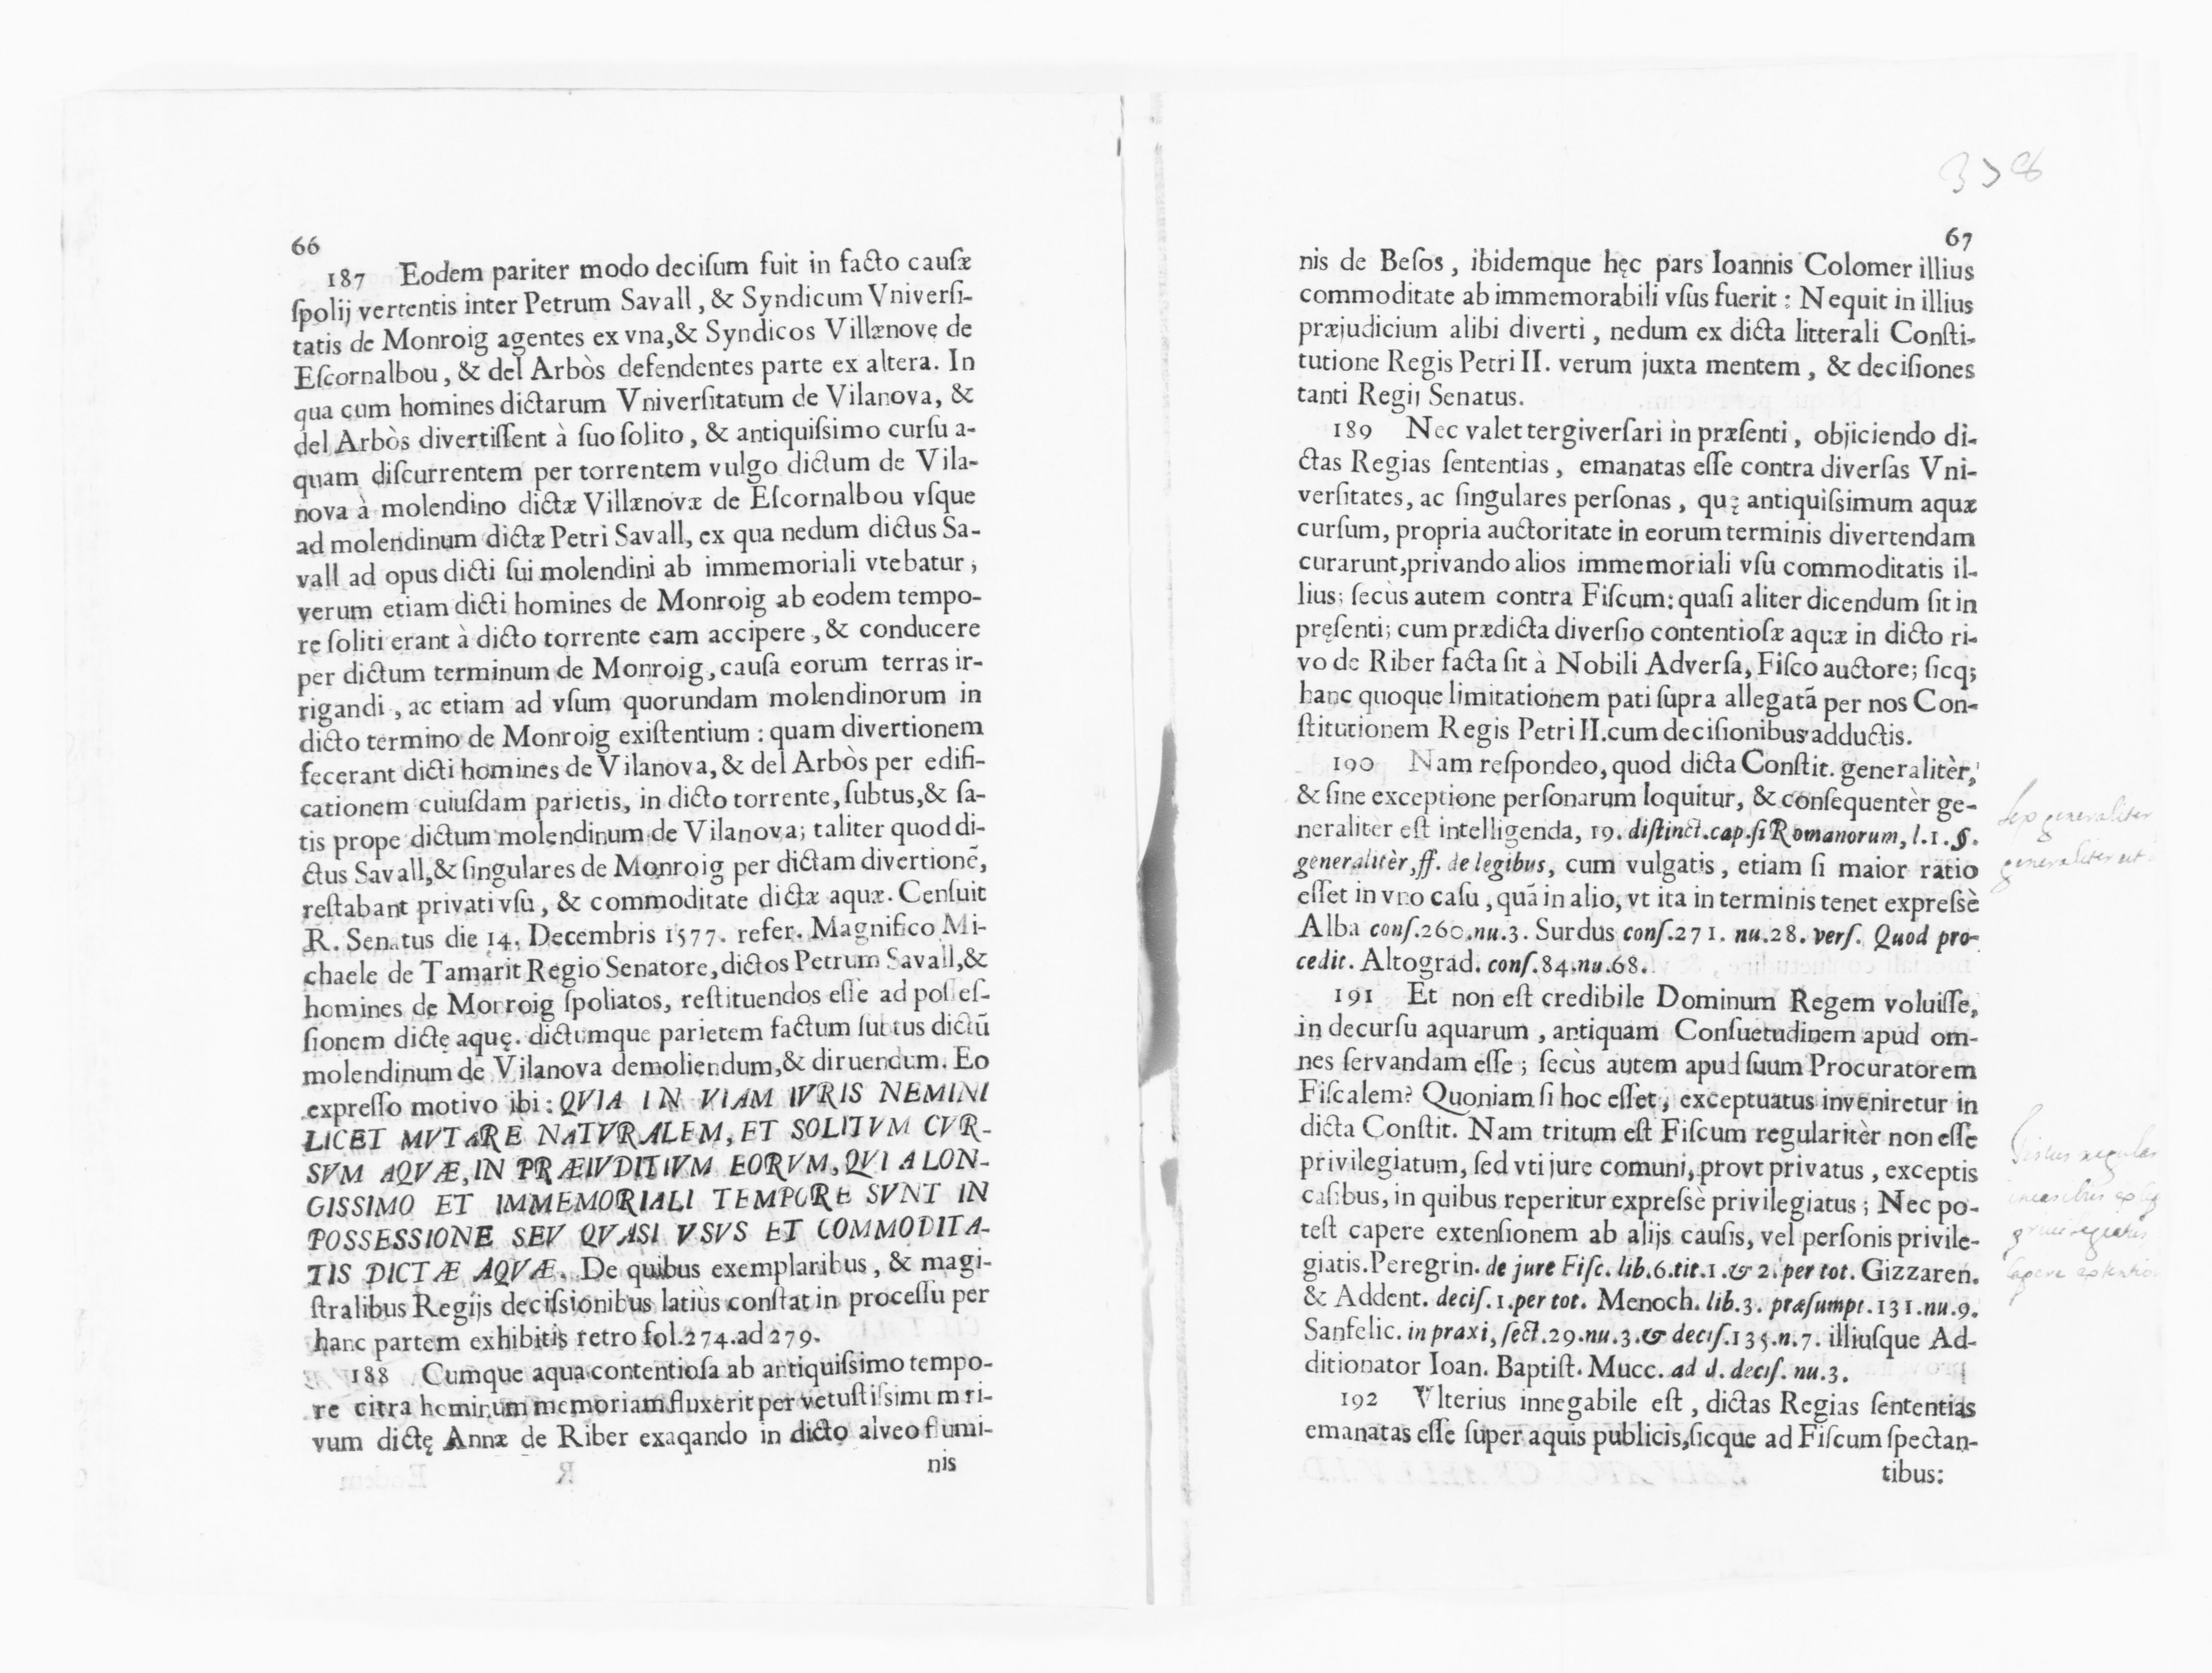 66
187 Eodem pariter modo deciſum fuit in facto cauſæ
ſpolij vertentis inter Petrum Savall, & Syndicum Vniverſi-
tatis de Monroig agentes ex vna,& Syndicos Villænovę de
Eſcornalbou, & del Arbòs defendentes parte ex altera. In
qua cum homines dictarum Vniverſitatum de Vilanova, &
del Arbòs divertiſſent à ſuo ſolito, & antiquiſsimo curſu a-
quam diſcurrentem per torrentem vulgo dictum de Vila-
nova à molendino dictæ Villænovæ de Eſcornalbou vſque
ad molendinum dictæ Petri Savall, ex qua nedum dictus Sa-
vall ad opus dicti ſui molendini ab immemoriali vtebatur,
verum etiam dicti homines de Monroig ab eodem tempo-
re ſoliti erant à dicto torrente eam accipere, & conducere
per dictum terminum de Monroig, cauſa eorum terras ir-
rigandi, ac etiam ad vſum quorundam molendinorum in
dicto termino de Monroig exiſtentium : quam divertionem
fecerant dicti homines de Vilanova, & del Arbòs per edifi-
cationem cuiuſdam parietis, in dicto torrente, ſubtus,& ſa-
tis prope dictum molendinum de Vilanova; taliter quod di-
ctus Savall,& ſingulares de Monroig per dictam divertionẽ,
reſtabant privati vſu, & commoditate dictæ aquæ. Cenſuit
R. Senatus die 14. Decembris 1577. refer. Magnifico Mi-
chaele de Tamarit Regio Senatore, dictos Petrum Savall,&
homines de Monroig ſpoliatos, reſtituendos eſſe ad poſſeſ-
ſionem dictę aquę. dictumque parietem factum ſubtus dictũ
molendinum de Vilanova demoliendum,& diruendum. Eo
expreſſo motivo ibi: QVIA IN VIAM IVRIS NEMINI
LICET MVTARE NATVRALEM, ET SOLITVM CVR-
SVM AQVÆ, IN PRÆIVDITIVM EORVM, QVI A LON-
GISSIMO ET IMMEMORIALI TEMPORE SVNT IN
POSSESSIONE SEV QVASI VSVS ET COMMODITA-
TIS DICTÆ AQVÆ. De quibus exemplaribus, & magi-
ſtralibus Regijs deciſsionibus latiùs conſtat in proceſſu per
hanc partem exhibitis retro fol.274.ad 279.
188 Cumque aqua contentioſa ab antiquiſsimo tempo-
re citra hominum memoriam fluxerit per vetuſtiſsimum ri-
vum dictę Annæ de Riber exaqando in dicto alveo flumi-
nis
67
nis de Beſos, ibidemque hęc pars Ioannis Colomer illius
commoditate ab immemorabili vſus fuerit : Nequit in illius
præjudicium alibi diverti, nedum ex dicta litterali Conſti-
tutione Regis Petri II. verum juxta mentem, & deciſiones
tanti Regij Senatus.
189 Nec valet tergiverſari in præſenti, objiciendo di-
ctas Regias ſententias, emanatas eſſe contra diverſas Vni-
verſitates, ac ſingulares perſonas, quę antiquiſsimum aquæ
curſum, propria auctoritate in eorum terminis divertendam
curarunt,privando alios immemoriali vſu commoditatis il-
lius; ſecùs autem contra Fiſcum: quaſi aliter dicendum ſit in
pręſenti; cum prædicta diverſio contentioſæ aquæ in dicto ri-
vo de Riber facta ſit à Nobili Adverſa, Fiſco auctore; ſicq;
hanc quoque limitationem pati ſupra allegatã per nos Con-
ſtitutionem Regis Petri II.cum deciſionibus adductis.
190 Nam reſpondeo, quod dicta Conſtit. generalitèr,
& ſine exceptione perſonarum loquitur, & conſequentèr ge-
neralitèr eſt intelligenda, 19. diſtinct.cap.ſi Romanorum, l.1.§.
generalitèr, ff. de legibus, cum vulgatis, etiam ſi maior ratio
eſſet in vno caſu, quã in alio, vt ita in terminis tenet expreſsè
Alba conſ.260.nu.3. Surdus conſ.271. nu.28. verſ. Quod pro-
cedit. Altograd. conſ.84.nu.68.
191 Et non eſt credibile Dominum Regem voluiſſe,
in decurſu aquarum, antiquam Conſuetudinem apud om-
nes ſervandam eſſe ; ſecùs autem apud ſuum Procuratorem
Fiſcalem? Quoniam ſi hoc eſſet, exceptuatus inveniretur in
dicta Conſtit. Nam tritum eſt Fiſcum regularitèr non eſſe
privilegiatum, ſed vti jure comuni, provt privatus, exceptis
caſibus, in quibus reperitur expreſsè privilegiatus ; Nec po-
teſt capere extenſionem ab alijs cauſis, vel perſonis privile-
giatis.Peregrin. de jure Fiſc. lib.6.tit.1.& 2. per tot. Gizzaren.
& Addent. deciſ.1.per tot. Menoch. lib.3. præſumpt.131.nu.9.
Sanfelic. in praxi, ſect.29.nu.3.& deciſ.135.n.7. illiuſque Ad-
ditionator Ioan. Baptiſt. Mucc. ad d. deciſ. nu.3.
192 Vlterius innegabile eſt, dictas Regias ſententias
emanatas eſſe ſuper aquis publicis,ſicque ad Fiſcum ſpectan-
tibus:
generaliter
generaliter